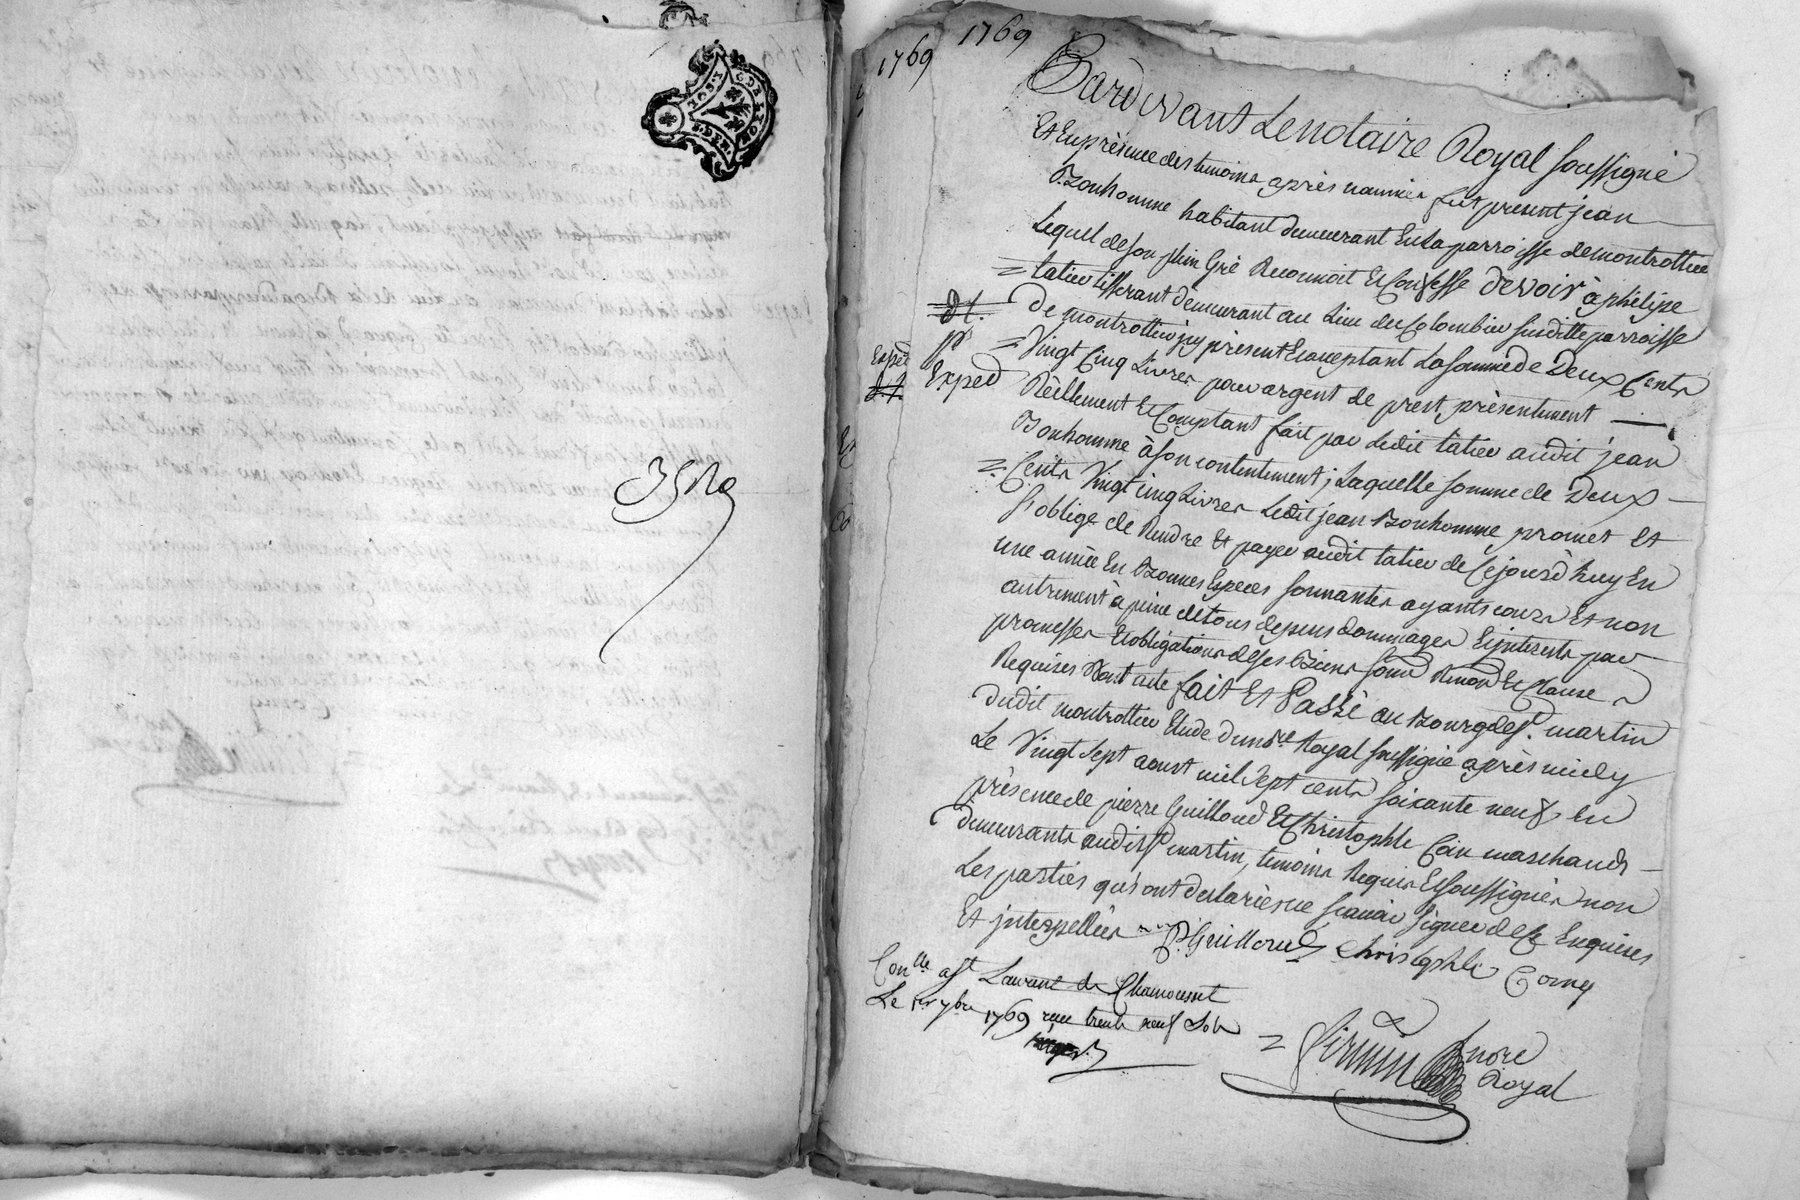 1769
1769
Pardevant Le notaire Royal soussigné
Et En présence des temoins après nommés fut présent jean
Bonhomme habitant demeurant En la parroisse de montrottier
Lequel de son plein Gré Reconnoit Et Confesse devoir à phélipe
tatieu tisserant demeurant au Lieu du Colombier susditte parroisse
de montrottier, jcy présent Et acceptant La somme de Deux Cents
Vingt Cinq Livres pour argent de prest, présentement
Réellement Et Comptant fait par Ledit tatieu audit jean
Bonhomme à son contentement; Laquelle somme de Deux
Cents Vingt cinq Livres Ledit jean Bonhomme promet Et
s'oblige de Rendre Et payer audit tatieu de Cejourd'huy En
une année En Bonnes Especes sonnantes ayants cours Et non
autrement à peine de tous depens dommages Et jnterests par
promesses Et obligations de ses Biens soum Renon Et Clauses
Requises Dont acte fait Et Passé au Bourg de St. martin
dudit montrottier Etude du nore Royal soussigné après midy
Le Vingt sept aoust mil sept cents soixante neuf En
présence de pierre Guilloud Et Christophle Coin marchands
demeurants audit St martin, temoins Requis Et soussignés non
Les parties qui ont declarés ne scavoir signer de ce Enquises
Et jnterpellées
P. Guilloud Christophle Coing
Con lle a St Laurent de Chamousset
Le 1er 7bre 1769 reçu trente neuf sols
Firmin nore
Royal
Exped
Exped